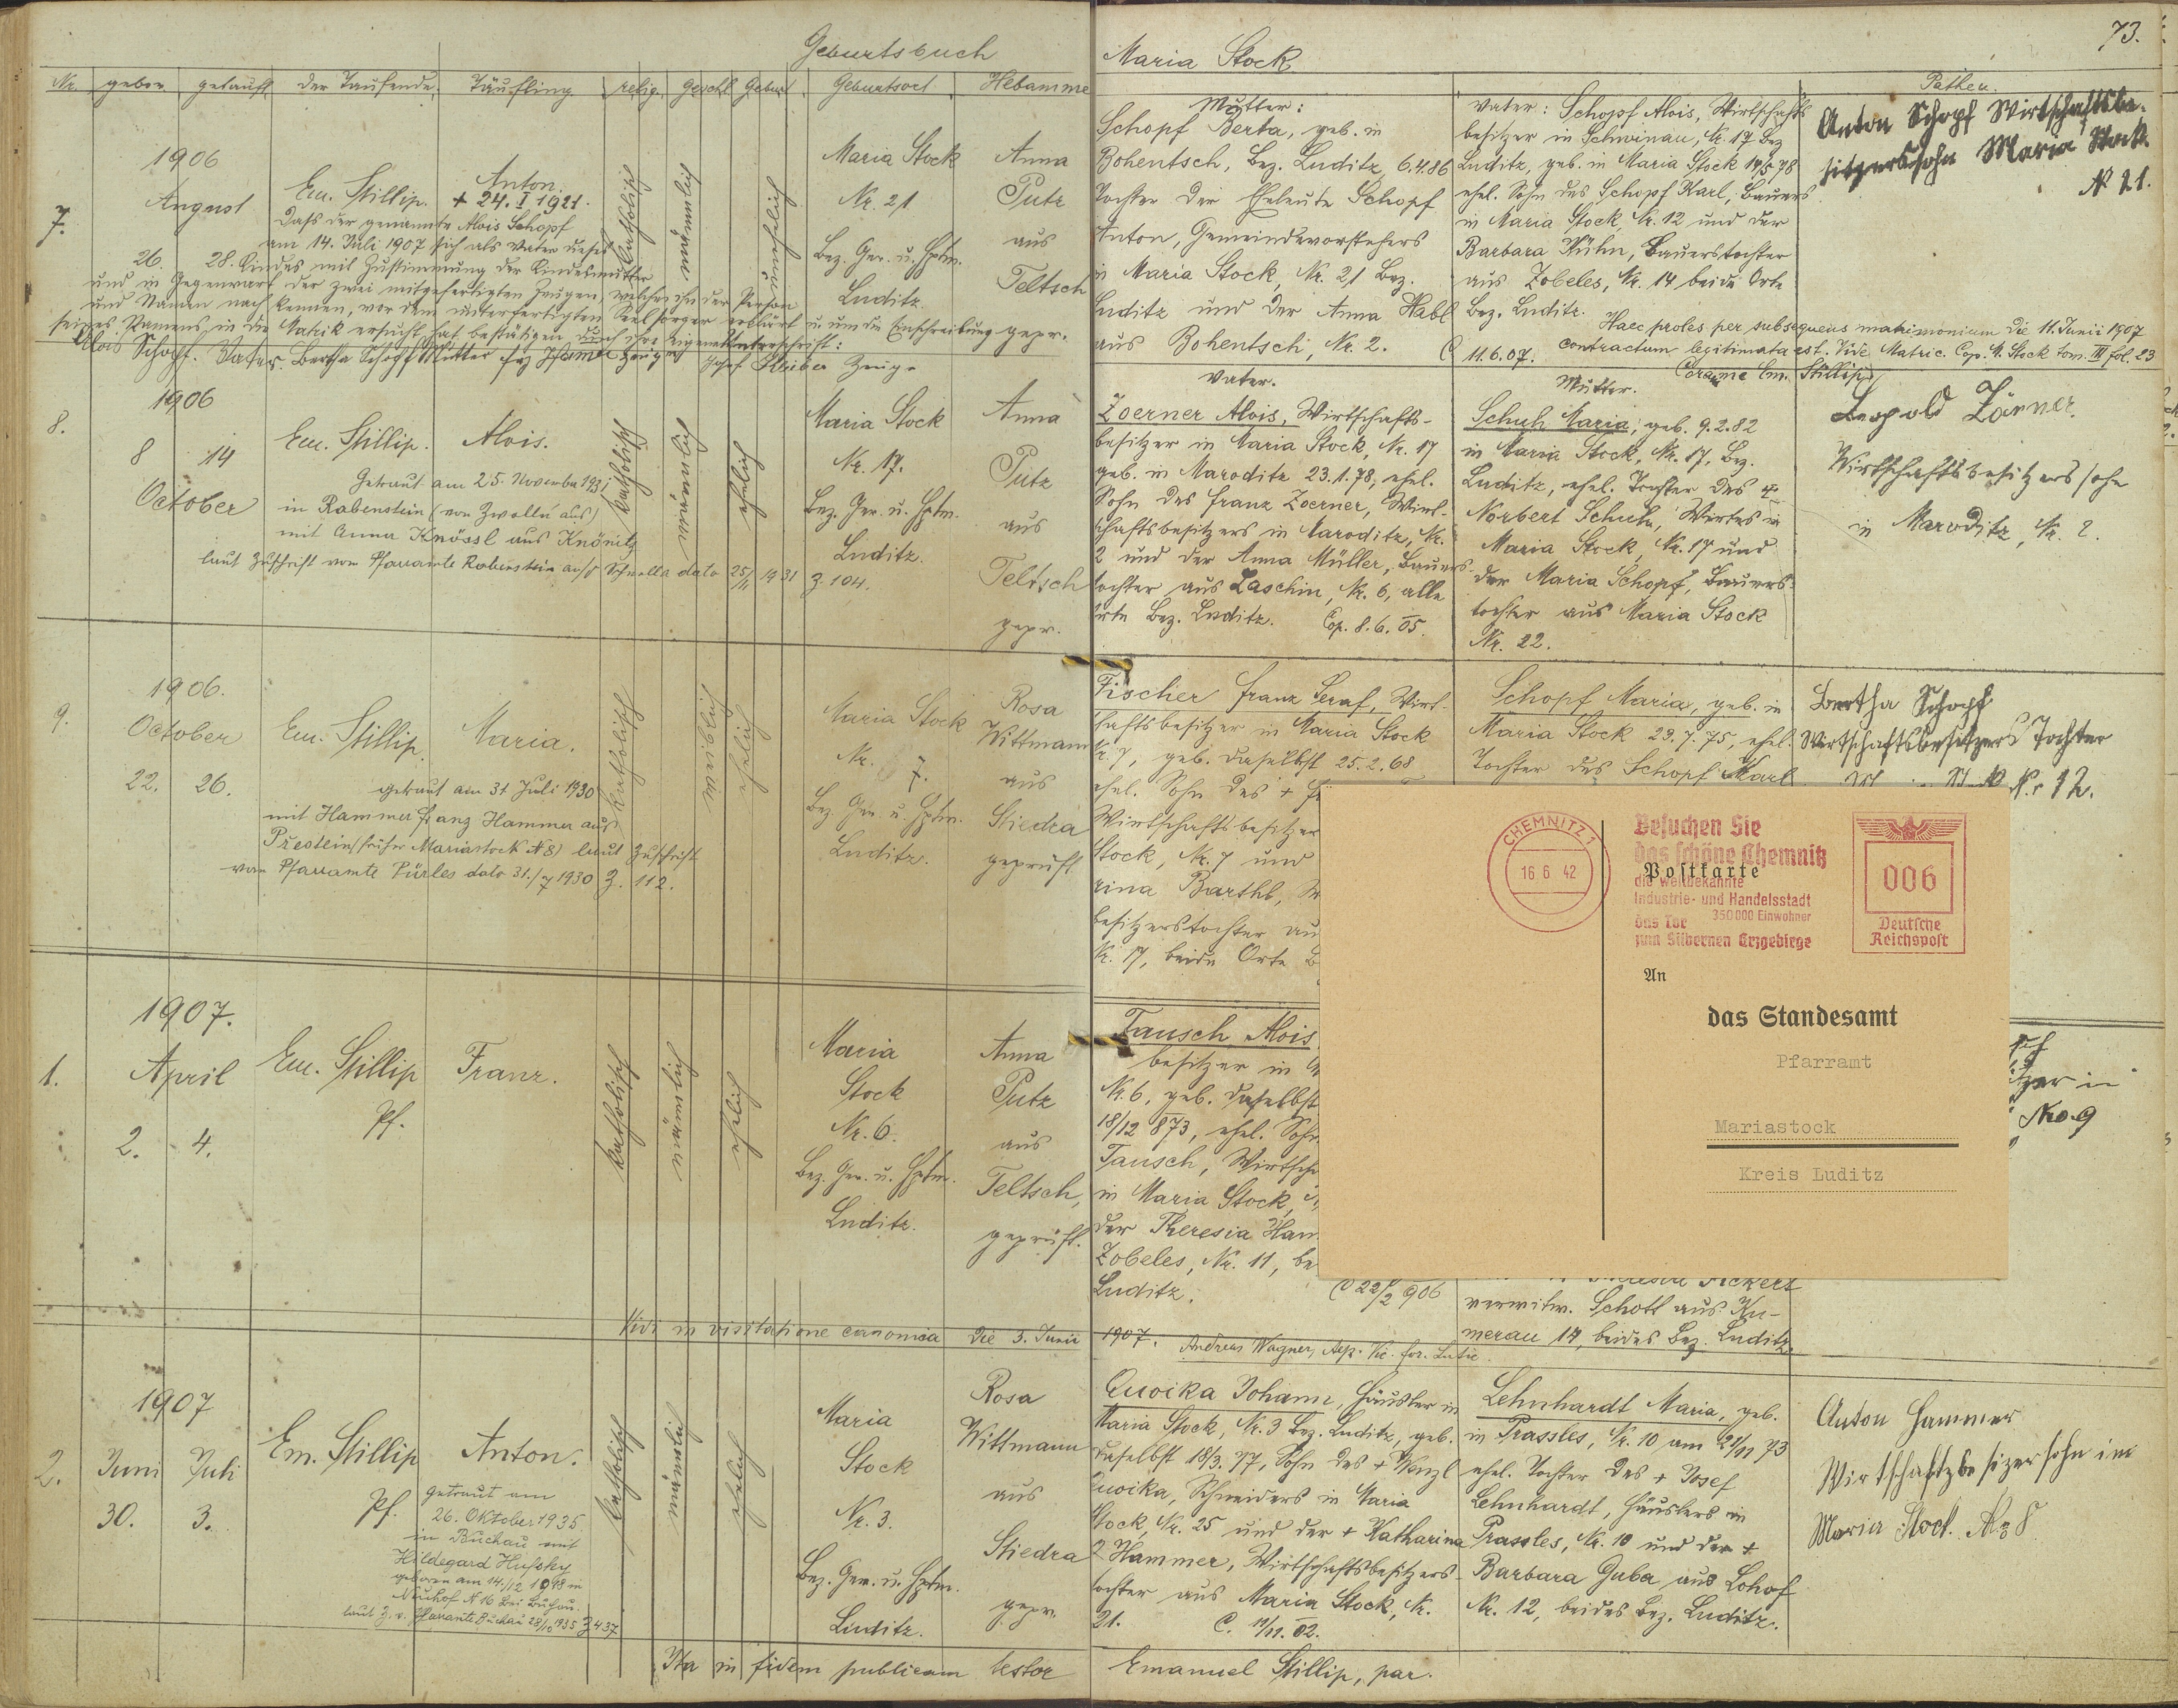 Geburtsbuch
Maria Stock
73.
Nr. geboren getauft der Taufende Täufling relig. Geschl. Geburt Geburtsort Hebamme
Pathen.
7.
1906
August
26. 28.
Em. Stillip.
Anton.
+ 24. I 1921.
Daß der genannte Alois Schopf
am 14. Juli 1907 sich als Vater dieses
Kindes mit Zustimmung der Kindesmutter
und in Gegenwart der zwei mitgefertigten Zeugen, welche ihn der Person
und Namen nach kennen, vor dem unterfertigten Seelsorger erklärt u. um die Einschreibung
seines Namens in die Matrik ersucht hat, bestätigen durch ihre eigene Unterschrift:
Alois Schopf. Vater. Bertha Schopf Mutter
Zeuge
katholisch
männlich
unehelich
Maria Stock
Nr. 21
Bez. Ger. u. Hptm.
Luditz.
Anna
Putz
aus
Teltsch
gepr.
Mutter:
Schopf Berta, geb. in
Bohentsch, Bez. Luditz, 6.4.86
Tochter der Eheleute Schopf
Anton, Gemeindevorstehers
in Maria Stock, Nr. 21 Bez.
Luditz und der Anna Habl
aus Bohentsch, Nr. 2.
Vater: Schopf Alois, Wirtschafts
besitzer in Schwinau, Nr. 17 Bez
Luditz, geb. in Maria Stock 14/5 78
ehel. Sohn des Schopf Karl, Bauers
in Maria Stock, Nr. 12 und der
Barbara Kühn, Bauerstochter
aus Zobeles, Nr. 14 beide Orte
Bez. Luditz.
11.6.07.
Haec proles per subsequens matrimonium die 11. Junii 1907
contractum legitimata est. Vide Matric. Cop. M. Stock tom. III fol. 23
Coram me Em. Stillip
Anton Schopf Wirtschaftsbe-
sitzerssohn Maria Stock
No 21.
8.
1906
8 14
October
Em. Stillip.
Alois.
Getraut am 25. November 1931
in Rabenstein (von Zwolln aus)
mit Anna Knössl aus Knönitz
laut Zuschrift vom Pfarramte Rabenstein dato 25/11 1931 Z. 104.
katholisch
männlich
ehelich
Maria Stock
Nr. 17.
Bez. Ger. u. Hptm.
Luditz.
Anna
Putz
aus
Teltsch
gepr.
Vater.
Zoerner Alois, Wirtschafts-
besitzer in Maria Stock, Nr. 17
geb. in Maroditz 23.1.78, ehel.
Sohn des Franz Zoerner, Wirt-
schaftsbesitzers in Maroditz, Nr.
2 und der Anna Müller, Bauers-
tochter aus Laschin, Nr. 6, alle
Orte Bez. Luditz. Cop. 8.6.05.
Mutter.
Schuh Maria, geb. 9.2.82
in Maria Stock, Nr. 17, Bez.
Luditz, ehel. Tochter des +
Norbert Schuh, Wirtes in
Maria Stock, Nr. 17 und
der Maria Schopf, Bauers-
tochter aus Maria Stock
Nr. 22.
Leopold Zörner
Wirtschaftsbesitzerssohn
in Maroditz, Nr. 2.
9.
1906.
October
22. 26.
Em. Stillip
Maria.
getraut am 31 Juli 1930
mit Hammer Franz Hammer aus
Prestein (früher Mariastock N 8) laut Zuschrift
vom Pfarramte Pürles dato 31./7 1930 Z. 112.
katholisch
weiblich
ehelich
Maria Stock
Nr. 7.
Bez. Ger. u. Hptm.
Luditz.
Rosa
Wittmann
aus
Stiedra
geprüft
Fischer Franz Seraf, Wirt-
schaftsbesitzer in Maria Stock
Nr. 7, geb. daselbst 25.2.68
ehel. Sohn des +
Wirtschaftsbesitzer
Stock, Nr. 7 und
rina Barthl,
besitzerstochter au
Nr. 17, beide Orte
Schopf Maria, geb. in
Maria Stock 29.7.75, ehel.
Tochter des Schopf Karl
Bertha Schopf
Wirtschaftsbesitzers Tochter
Nr 12.
CHEMNITZ 1
16 6 42
Besuchen Sie
das schöne Chemnitz
die weltbekannte
Industrie- und Handelsstadt
350 000 Einwohner
das Tor
zum Silbernen Erzgebirge
006
Deutsche
Reichspost
Postkarte
An
das Standesamt
Pfarramt
Mariastock
Kreis Luditz
1.
1907.
April
2. 4.
Em. Stillip
Pf.
Franz.
katholisch
männlich
ehelich
Maria
Stock
Nr. 6.
Bez. Ger. u. Hptm.
Luditz.
Anna
Putz
aus
Teltsch,
geprüft.
Tausch Alois
besitzer in
Nr. 6, geb. daselbst
18/12 873, ehel. Sohn
Tausch, Wirtsch
in Maria Stock,
der Theresia Ham
Zobeles, Nr. 11, be
Luditz.
22/2 906
verwitw. Schott aus Ku-
merau 14, beides Bez. Luditz.
No 9
Vidi in visitatione canonica die 5. Junii 1907.
Andreas Wagner,
2.
1907
Juni Juli
30. 3.
Em. Stillip
Pf.
Anton.
getraut am
26. Oktober 1935
in Buchau mit
Hildegard Hufsky
geboren am 14./12 1918 in
Neuhof N 16 bei Buchau.
laut Z. v. Pfarramte Buchau 28/10 1935 Z 437
katholisch
männlich
ehelich
Maria
Stock
Nr. 3.
Bez. Ger. u. Hptm.
Luditz.
Rosa
Wittmann
aus
Stiedra
gepr.
Quoika Johann, Häusler in
Maria Stock, Nr. 3 Bez. Luditz, geb.
daselbst 18/3. 77, Sohn des + Wenzl
Quoika, Schneiders in Maria
Stock, Nr. 25 und der + Katharina
Hammer, Wirtschaftsbesitzers-
tochter aus Maria Stock, Nr.
21. C. 11/11. 02.
Lehnhardt Maria, geb.
in Prassles, Nr. 10 am 21/11 73
ehel. Tochter des + Josef
Lehnhardt, Häuslers in
Prassles, Nr. 10 und der +
Barbara Guba aus Lohof
Nr. 12, beides Bez. Luditz.
Anton Hammer
Wirtschaftsbesizersohn in
Maria Stock No 8
Ita in fidem publicam testor
Emanuel Stillip, par.